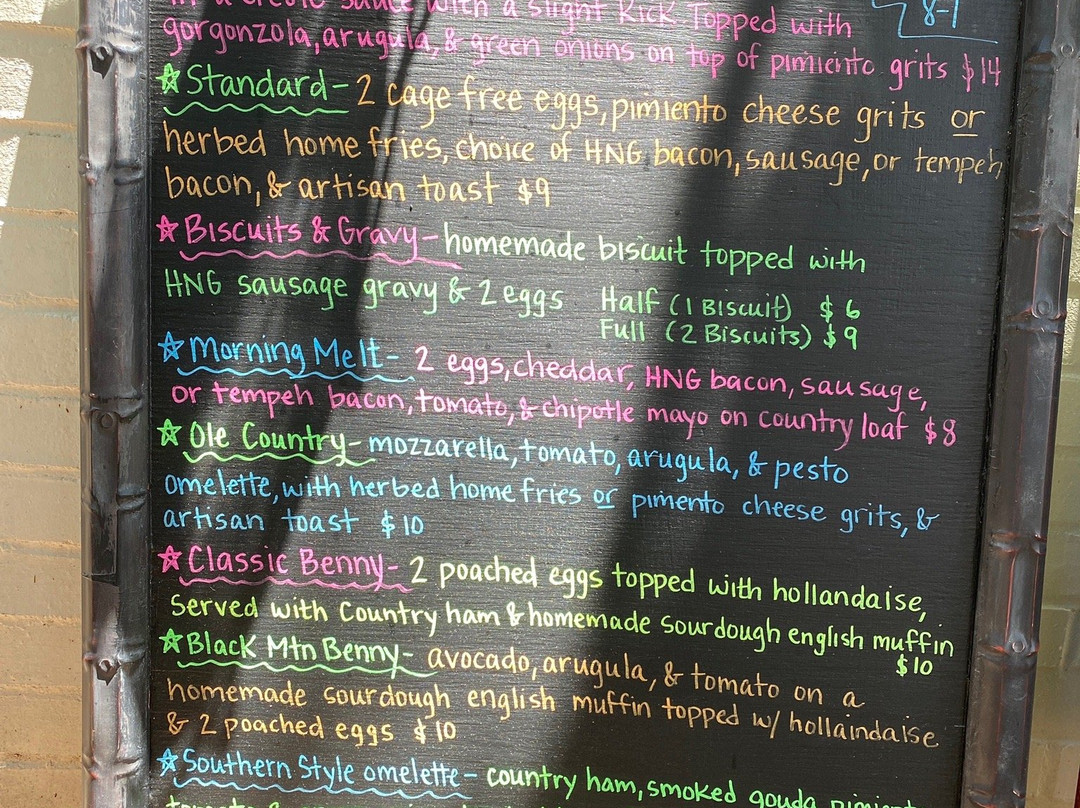 in a creole sauce with a slight kick Topped with
8-1
gorgonzola, arugula, & green onions on top of pimiento grits $14
☆Standard- 2 cage free eggs, pimiento cheese grits or
herbed home fries, choice of HNG bacon, sausage, or tempeh
bacon, & artisan toast $9
☆Biscuits & Gravy- homemade biscuit topped with
HNG sausage gravy & 2 eggs Half (1 Biscuit) $6
Full (2 Biscuits) $9
☆Morning Melt- 2 eggs, cheddar, HNG bacon, sausage,
or tempeh bacon, tomato, & chipotle mayo on country loaf $8
☆Ole Country- mozzarella, tomato, arugula, & pesto
omelette, with herbed home fries or pimento cheese grits, &
artisan toast $10
☆Classic Benny- 2 poached eggs topped with hollandaise,
Served with Country ham & homemade sourdough english muffin
$10
☆Black Mtn Benny- avocado, arugula, & tomato on a
homemade sourdough english muffin topped w/ hollaindaise
& 2 poached eggs $10
☆Southern Style omelette- country ham, smoked gouda, pimient